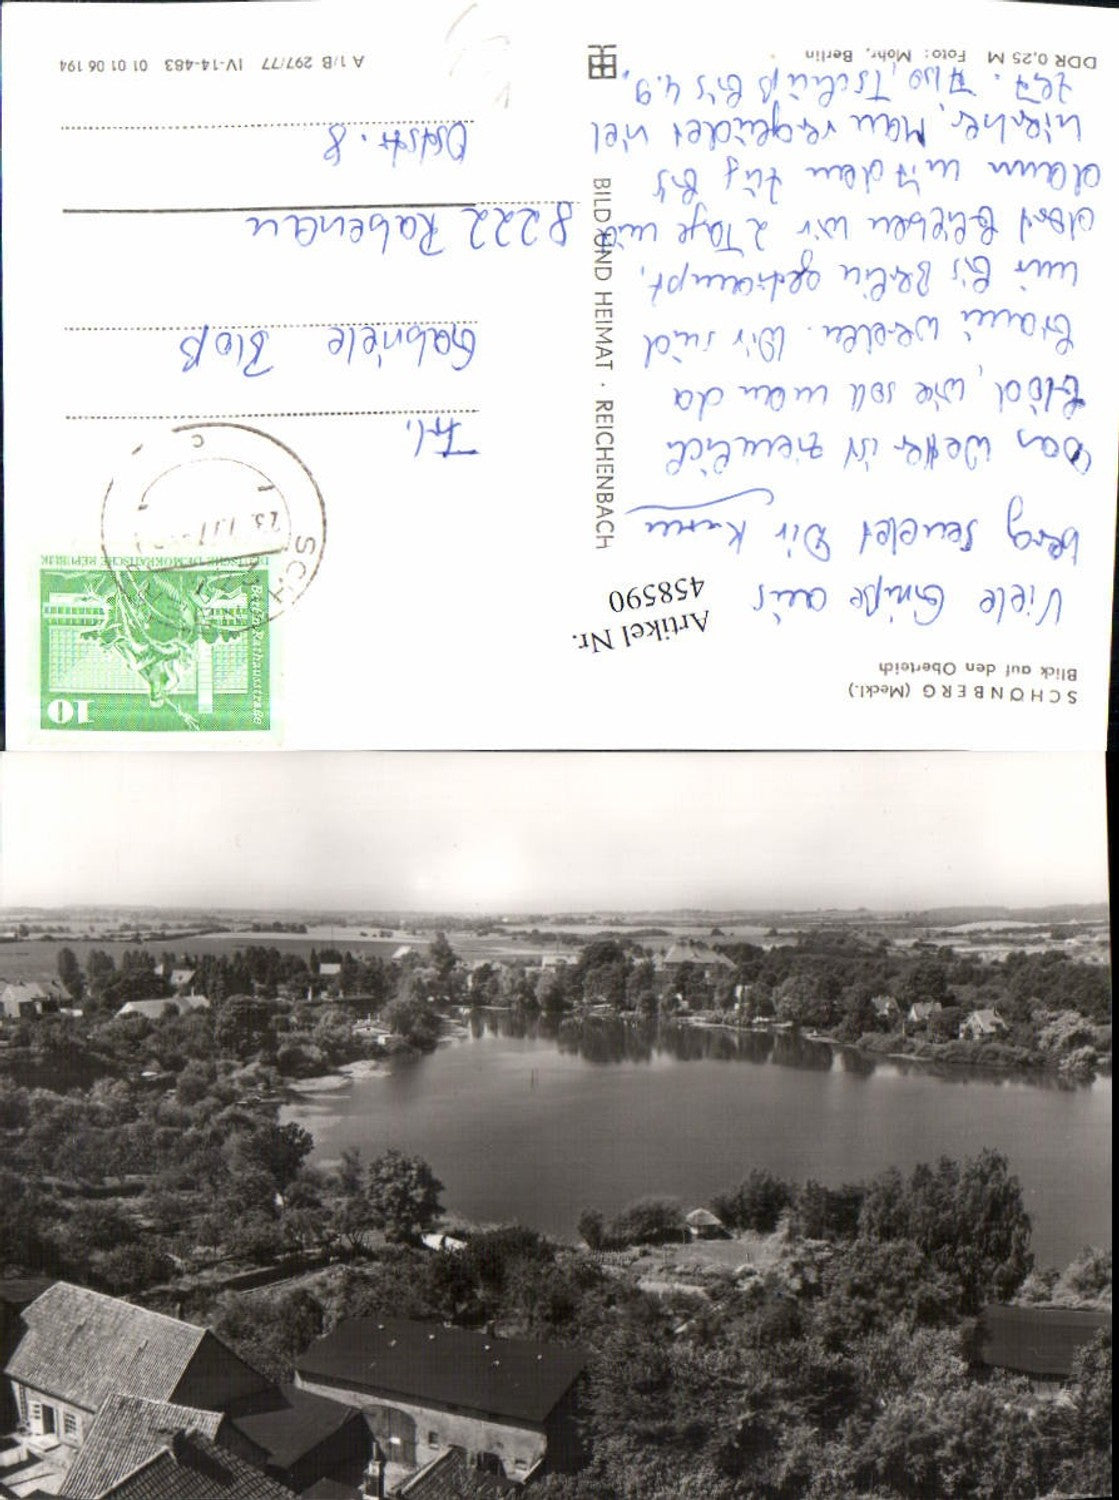 SCHÖNBERG (Meckl.)
Blick auf den Oberteich
Artikel Nr.
458590
Viele Grüße aus
berg sendet Dir
Das Wetter ist ziemlich
blöd, wie soll man da
braun werden. Wir sind
mir bis Berlin getrampt,
dort blieben wir 2 Tage und
dann mit dem Zug bis
hierher. Man vergeudet viel
Zeit. Also, Tschüß bis 4.9.
DDR 0,25 M Foto: Mohr, Berlin
BILD UND HEIMAT · REICHENBACH
10
Berlin, Rathausstraße
DEUTSCHE DEMOKRATISCHE REPUBLIK
c
Frl.
Gabriele Bloß
8222 Rabenau
Oststr. 8
A 1/B 297/77 IV-14-483 01 01 06 194